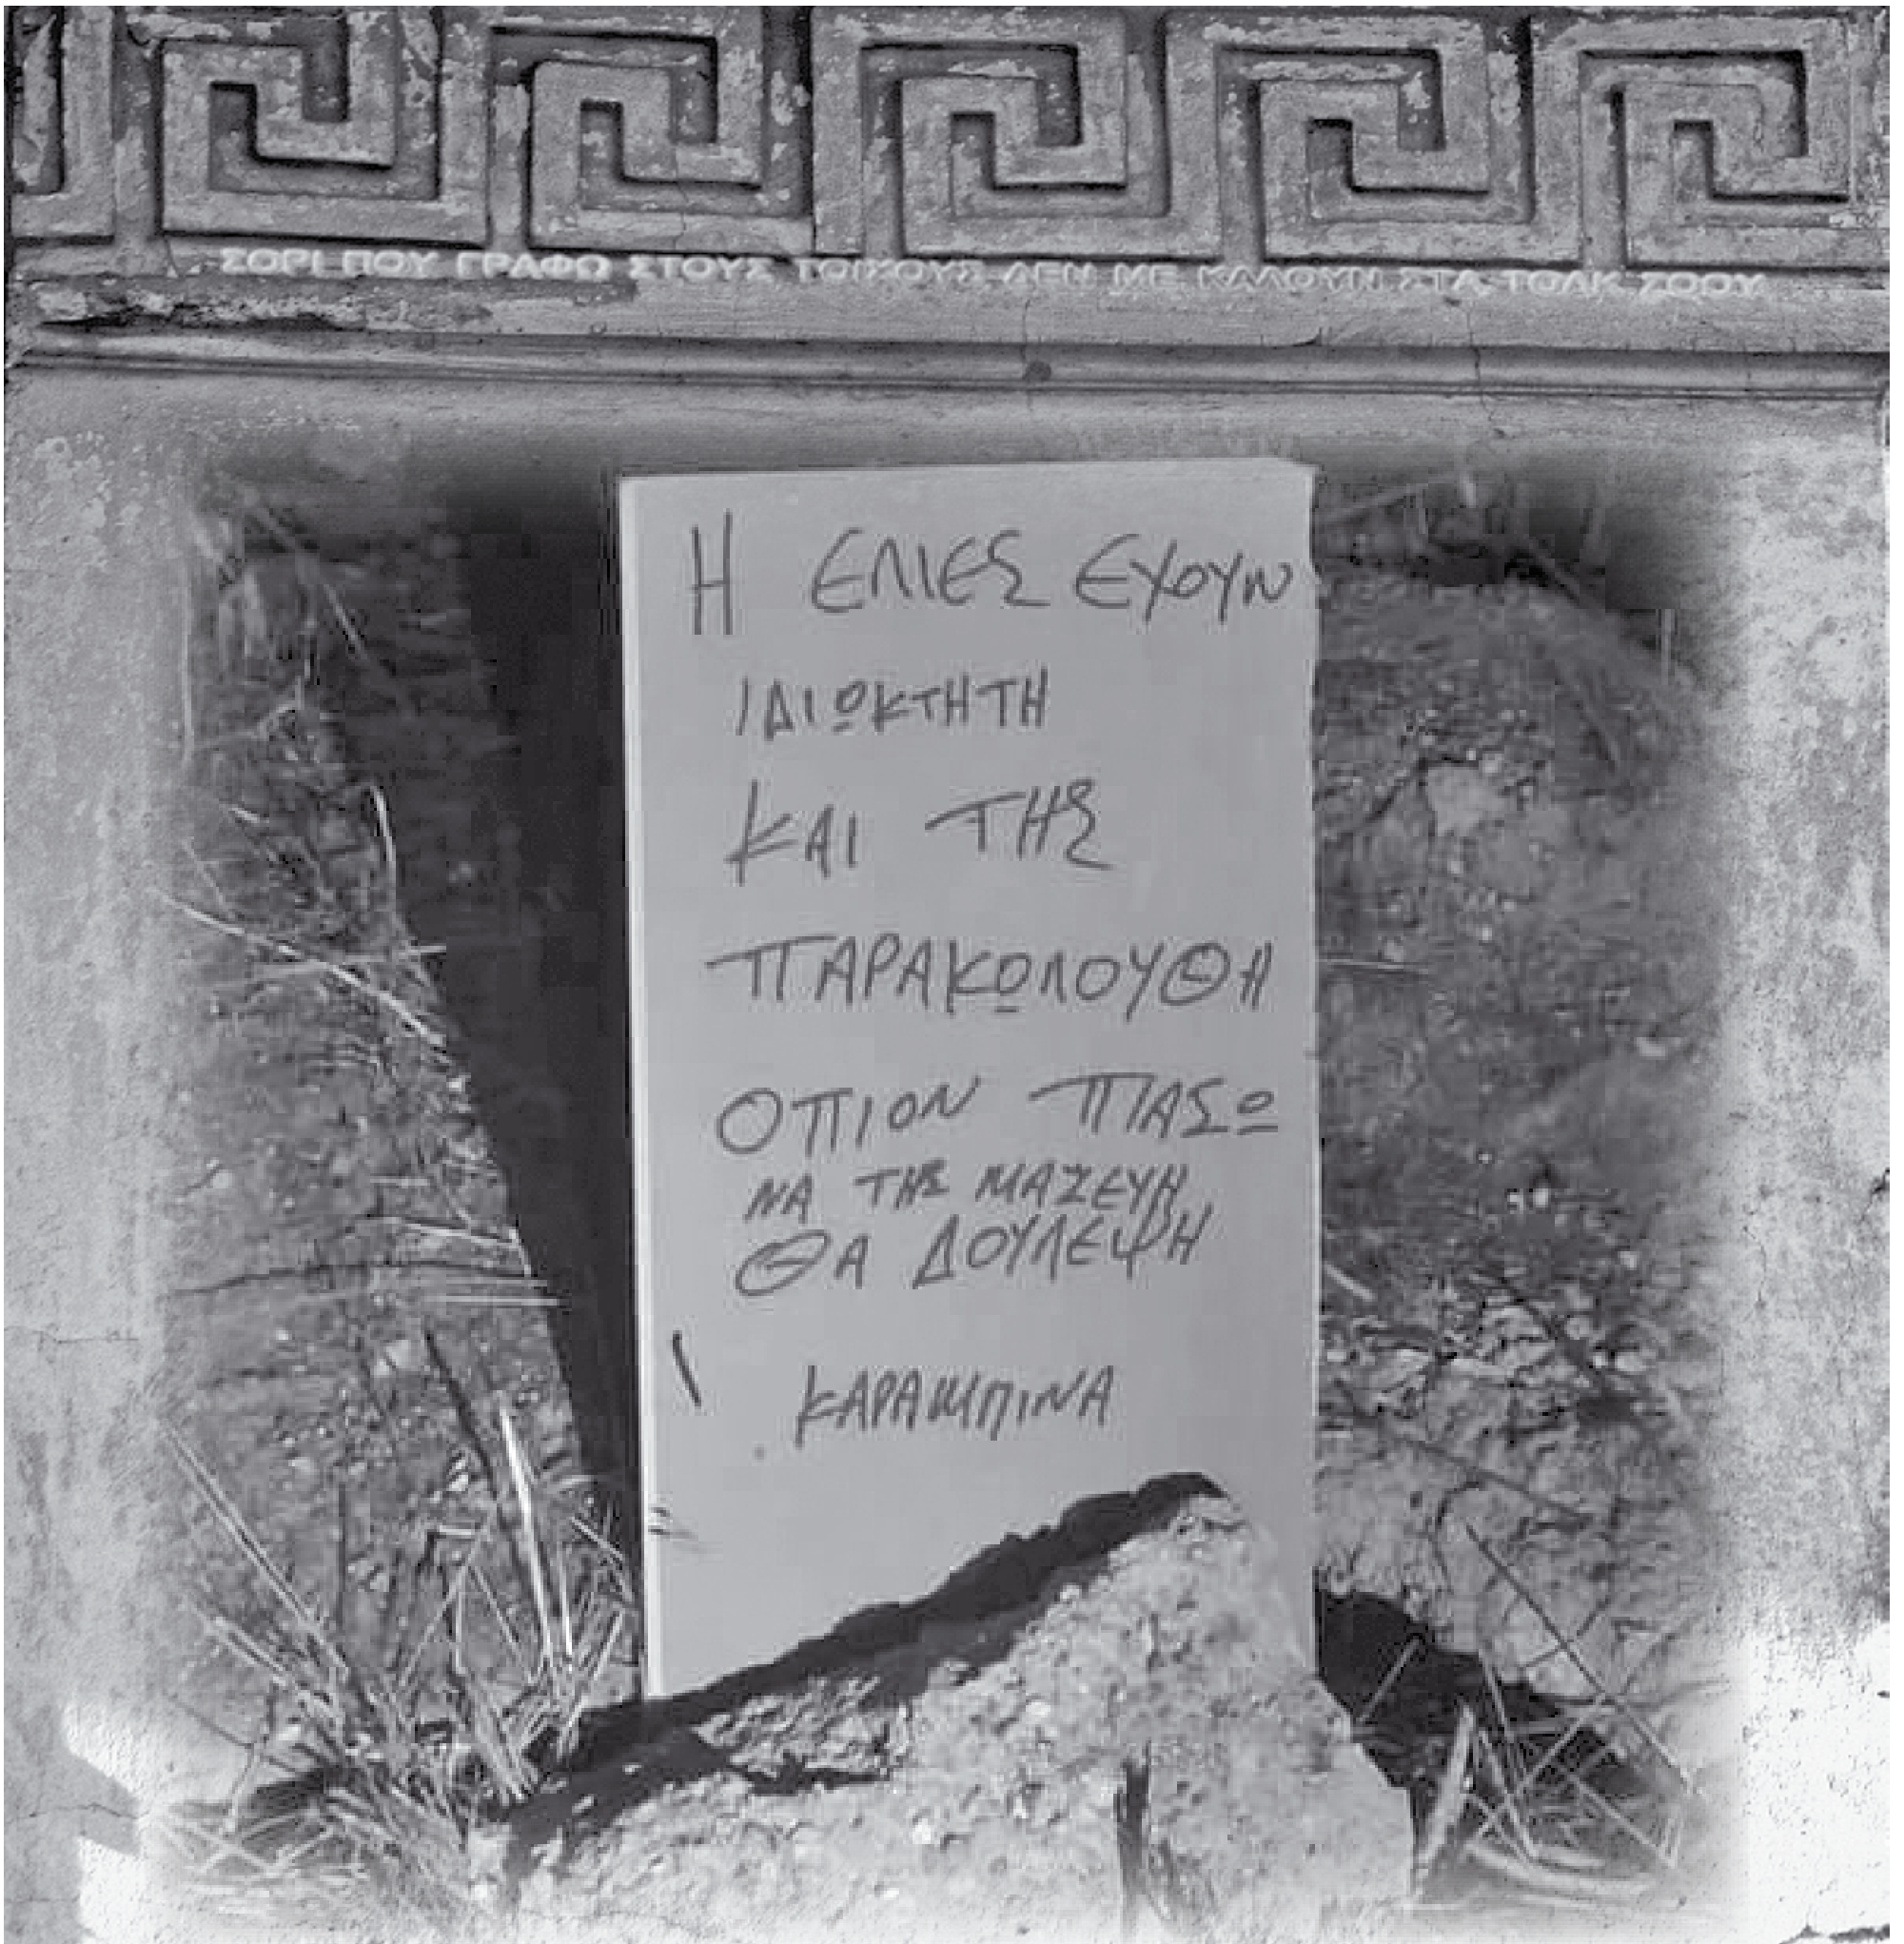 ΣΟΡΙ ΠΟΥ ΓΡΑΦΩ ΣΤΟΥΣ ΤΟΙΧΟΥΣ ΔΕΝ ΜΕ ΚΑΛΟΥΝ ΣΤΑ ΤΟΛΚ ΣΟΟΥ
Η ΕΛΙΕΣ ΕΧΟΥΝ
ΙΔΙΩΚΤΗΤΗ
ΚΑΙ ΤΗΣ
ΠΑΡΑΚΩΛΟΥΘΗ
ΟΠΙΟΝ ΠΙΑΣΩ
ΝΑ ΤΗΣ ΜΑΖΕΥΗ
ΘΑ ΔΟΥΛΕΨΗ
ΚΑΡΑΜΠΙΝΑ